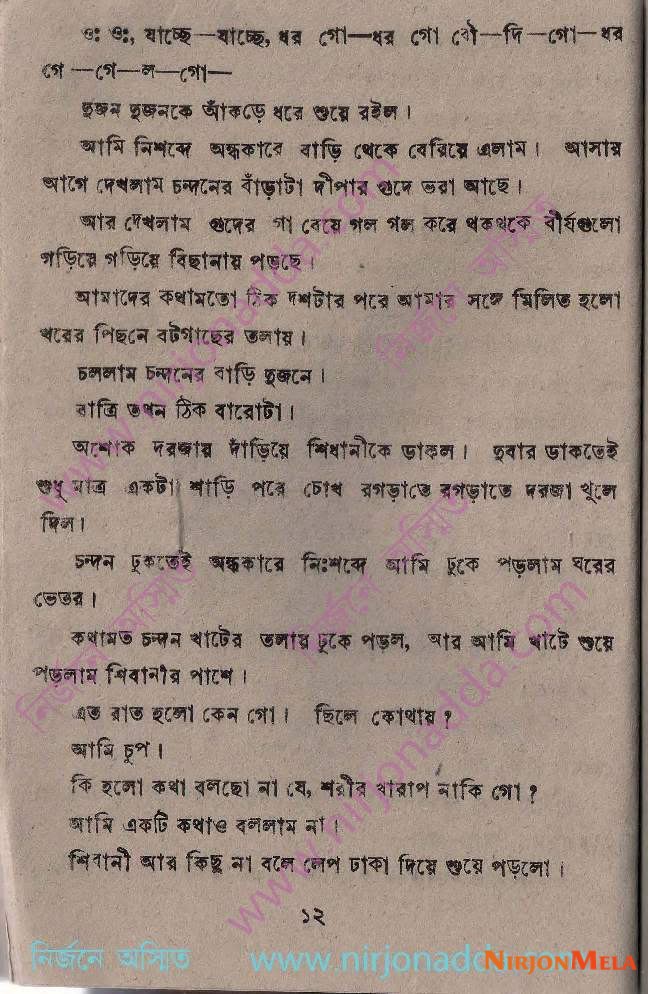 ওঃ ওঃ, যাচ্ছে—যাচ্ছে, ধর গো—ধর গো বৌ—দি—গো—ধর
গে —গে—ল—গো—
দুজন দুজনকে আঁকড়ে ধরে শুয়ে রইল।
আমি নিশব্দে অন্ধকারে বাড়ি থেকে বেরিয়ে এলাম। আসার
আগে দেখলাম চন্দনের বাঁড়াটা দীপার গুদে ভরা আছে।
আর দেখলাম গুদের গা বেয়ে গল গল করে থকথকে বীর্যগুলো
গড়িয়ে গড়িয়ে বিছানায় পড়ছে।
আমাদের কথামতো ঠিক দশটার পরে আমার সঙ্গে মিলিত হলো
ঘরের পিছনে বটগাছের তলায়।
চললাম চন্দনের বাড়ি দুজনে।
রাত্রি তখন ঠিক বারোটা।
অশোক দরজায় দাঁড়িয়ে শিবানীকে ডাকল। দুবার ডাকতেই
শুধু মাত্র একটা শাড়ি পরে চোখ রগড়াতে রগড়াতে দরজা খুলে
দিল।
চন্দন ঢুকতেই অন্ধকারে নিঃশব্দে আমি ঢুকে পড়লাম ঘরের
ভেতর।
কথামত চন্দন খাটের তলায় ঢুকে পড়ল, আর আমি খাটে শুয়ে
পড়লাম শিবানীর পাশে।
এত রাত হলো কেন গো। ছিলে কোথায়?
আমি চুপ।
কি হলো কথা বলছো না যে, শরীর খারাপ নাকি গো?
আমি একটি কথাও বললাম না।
শিবানী আর কিছু না বলে লেপ ঢাকা দিয়ে শুয়ে পড়লো।
১২
নির্জনে অস্মিত www.nirjonadda.com
NIRJONMELA